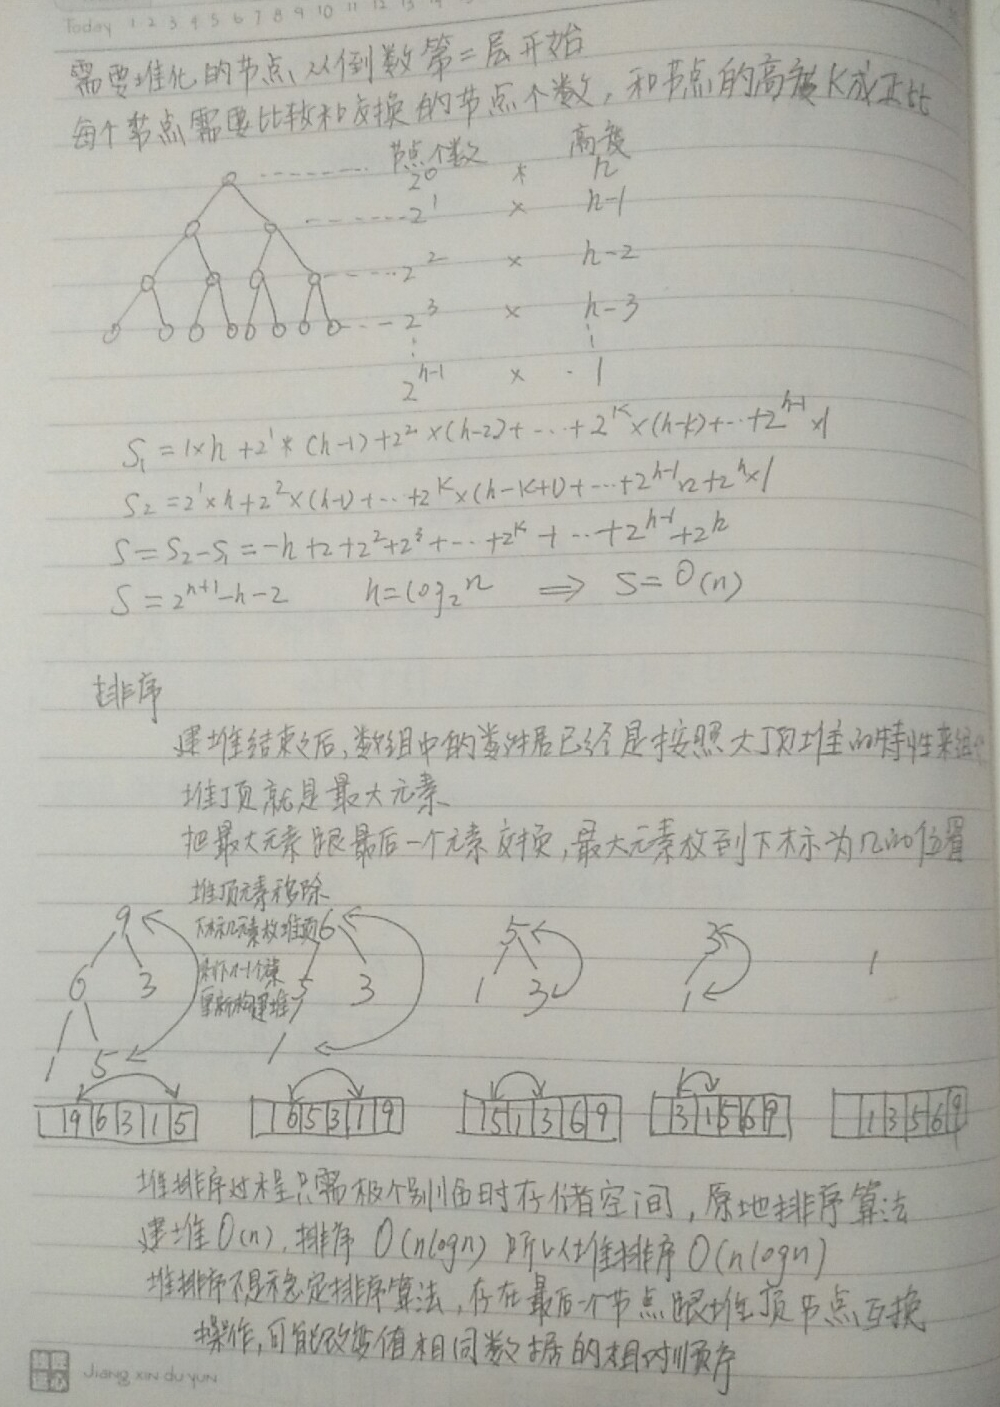 Today 1 2 3 4 5 6 7 8 9 10 11 12 13 14
需要堆化的节点、从倒数第二层开始
每个节点需要比较和交换的节点个数，和节点的高度K成正比
节点个数 高度
2^0 * h
2^1 × h-1
2^2 × h-2
2^3 × h-3
2^{h-1} × 1
S_1 = 1×h + 2^1 * (h-1) + 2^2 × (h-2) + ... + 2^k × (h-k) + ... + 2^{h-1} × 1
S_2 = 2^1 × h + 2^2 × (h-1) + ... + 2^k × (h-k+1) + ... + 2^{h-1}×2 + 2^h × 1
S = S_2 - S_1 = -h + 2 + 2^2 + 2^3 + ... + 2^k + ... + 2^{h-1} + 2^h
S = 2^{h+1} - h - 2 h = log_2 n ⟹ S = O(n)
排序
建堆结束之后，数组中的数据已经是按照大顶堆的特性来组
堆顶就是最大元素
把最大元素跟最后一个元素交换，最大元素放到下标为n的位置
堆顶元素移除
下标n元素放堆顶
剩下n-1个
重新构建堆
9
6 3
1 5
6
5 3
1
5
1 3
3
1
1
9 6 3 1 5
6 5 3 1 9
5 1 3 6 9
3 1 5 6 9
1 3 5 6 9
堆排序过程只需极个别临时存储空间，原地排序算法
建堆O(n)，排序 O(nlogn) 所以堆排序 O(nlogn)
堆排序不是稳定排序算法，存在最后一个节点跟堆顶节点互换
操作，可能改变值相同数据的相对顺序
Jiang XIN du YUN